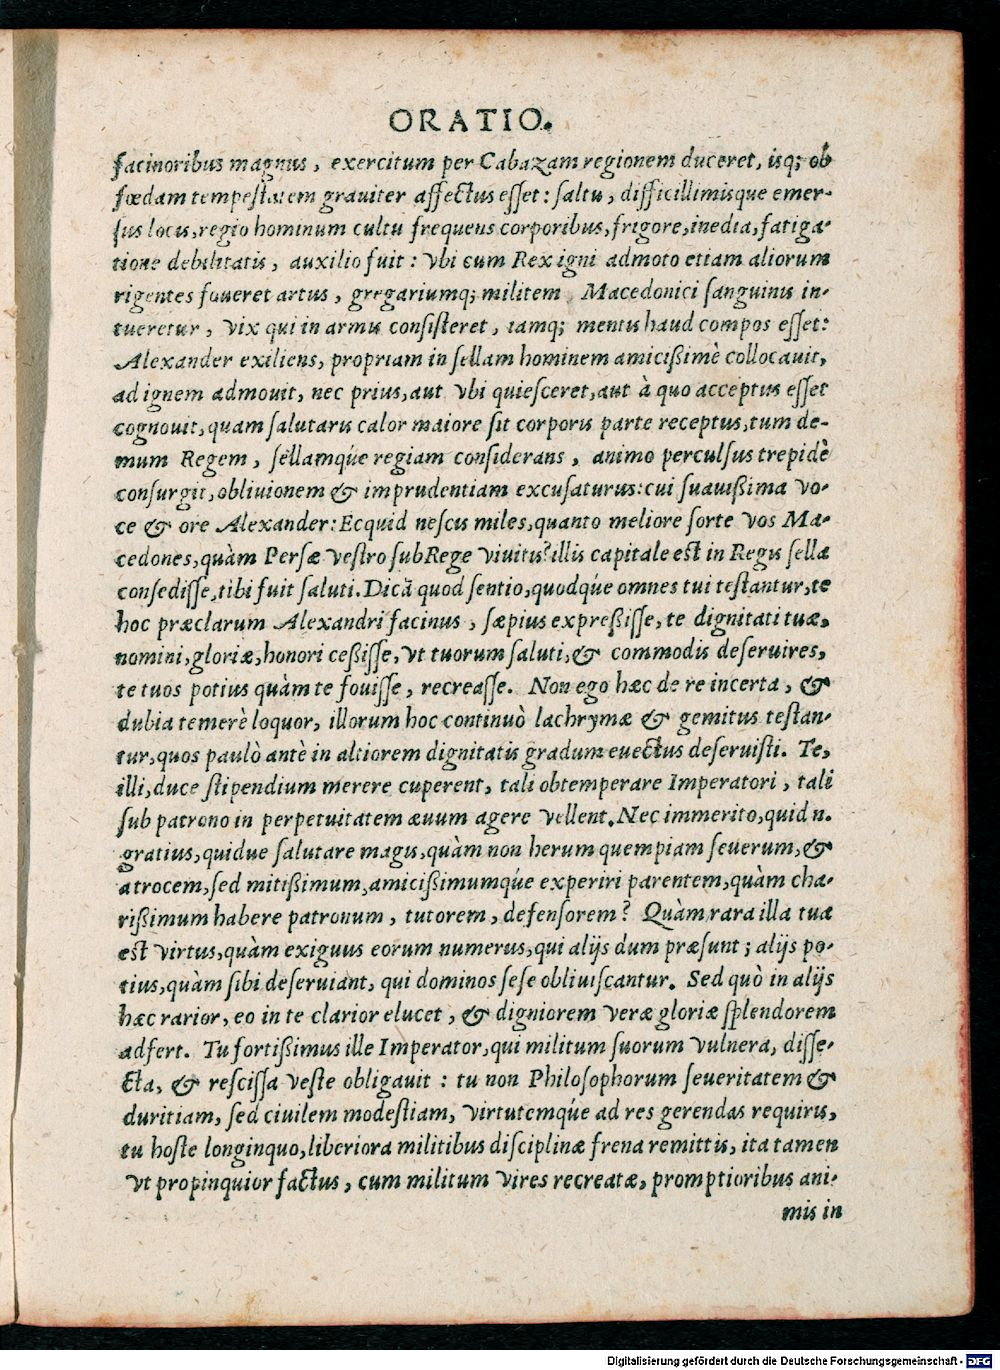 ORATIO.
facinoribus magnus, exercitum per Cabazam regionem duceret, isq; ob
fœdam tempestatem graviter affectus esset: saltu, difficillimisque emer-
sus locis, regio hominum cultu frequens corporibus, frigore, inedia, fatiga-
tione debilitatis, auxilio fuit: vbi cum Rex igni admoto etiam aliorum
rigentes foueret artus, gregariumq; militem Macedonici sanguinis in-
tueretur, vix qui in armis consisteret, iamq; mentis haud compos esset:
Alexander exiliens, propriam in sellam hominem amicißimè collocauit,
ad ignem admouit, nec prius, aut vbi quiesceret, aut à quo acceptus esset
cognouit, quam salutaris calor maiore sit corporis parte receptus, tum de-
mum Regem, sellamq́ue regiam considerans, animo perculsus trepidè
consurgit, obliuionem & imprudentiam excusaturus: cui suauißima vo-
ce & ore Alexander: Ecquid nescis miles, quanto meliore sorte vos Ma-
cedones, quàm Persæ vestro sub Rege viuitis? illis capitale est in Regis sella
consedisse, tibi fuit saluti. Dicã quod sentio, quodq́ue omnes tui testantur, te
hoc præclarum Alexandri facinus, sæpius expreßisse, te dignitati tuæ,
nomini, gloriæ, honori ceßisse, vt tuorum saluti, & commodis deseruires,
te tuos potius quàm te fouisse, recreasse. Non ego hæc de re incerta, &
dubia temerè loquor, illorum hoc continuò lachrymæ & gemitus testan-
tur, quos paulò antè in altiorem dignitatis gradum euectus deseruisti. Te,
illi, duce stipendium merere cuperent, tali obtemperare Imperatori, tali
sub patrono in perpetuitatem æuum agere vellent. Nec immerito, quid n.
gratius, quidue salutare magis, quàm non herum quempiam seuerum, &
atrocem, sed mitißimum, amicißimumq́ue experiri parentem, quàm cha-
rißimum habere patronum, tutorem, defensorem? Quàm rara illa tua
est virtus, quàm exiguus eorum numerus, qui alijs dum præsunt; alijs po-
tius, quàm sibi deseruiant, qui dominos sese obliuiscantur. Sed quò in alijs
hæc rarior, eo in te clarior elucet, & digniorem veræ gloriæ splendorem
adfert. Tu fortißimus ille Imperator, qui militum suorum vulnera, disse-
cta, & rescissa veste obligauit: tu non Philosophorum seueritatem &
duritiam, sed ciuilem modestiam, virtutemq́ue ad res gerendas requiris,
tu hoste longinquo, liberiora militibus disciplinæ frena remittis, ita tamen
vt propinquior factus, cum militum vires recreatæ, promptioribus ani-
mis in
Digitalisierung gefördert durch die Deutsche Forschungsgemeinschaft - DFG